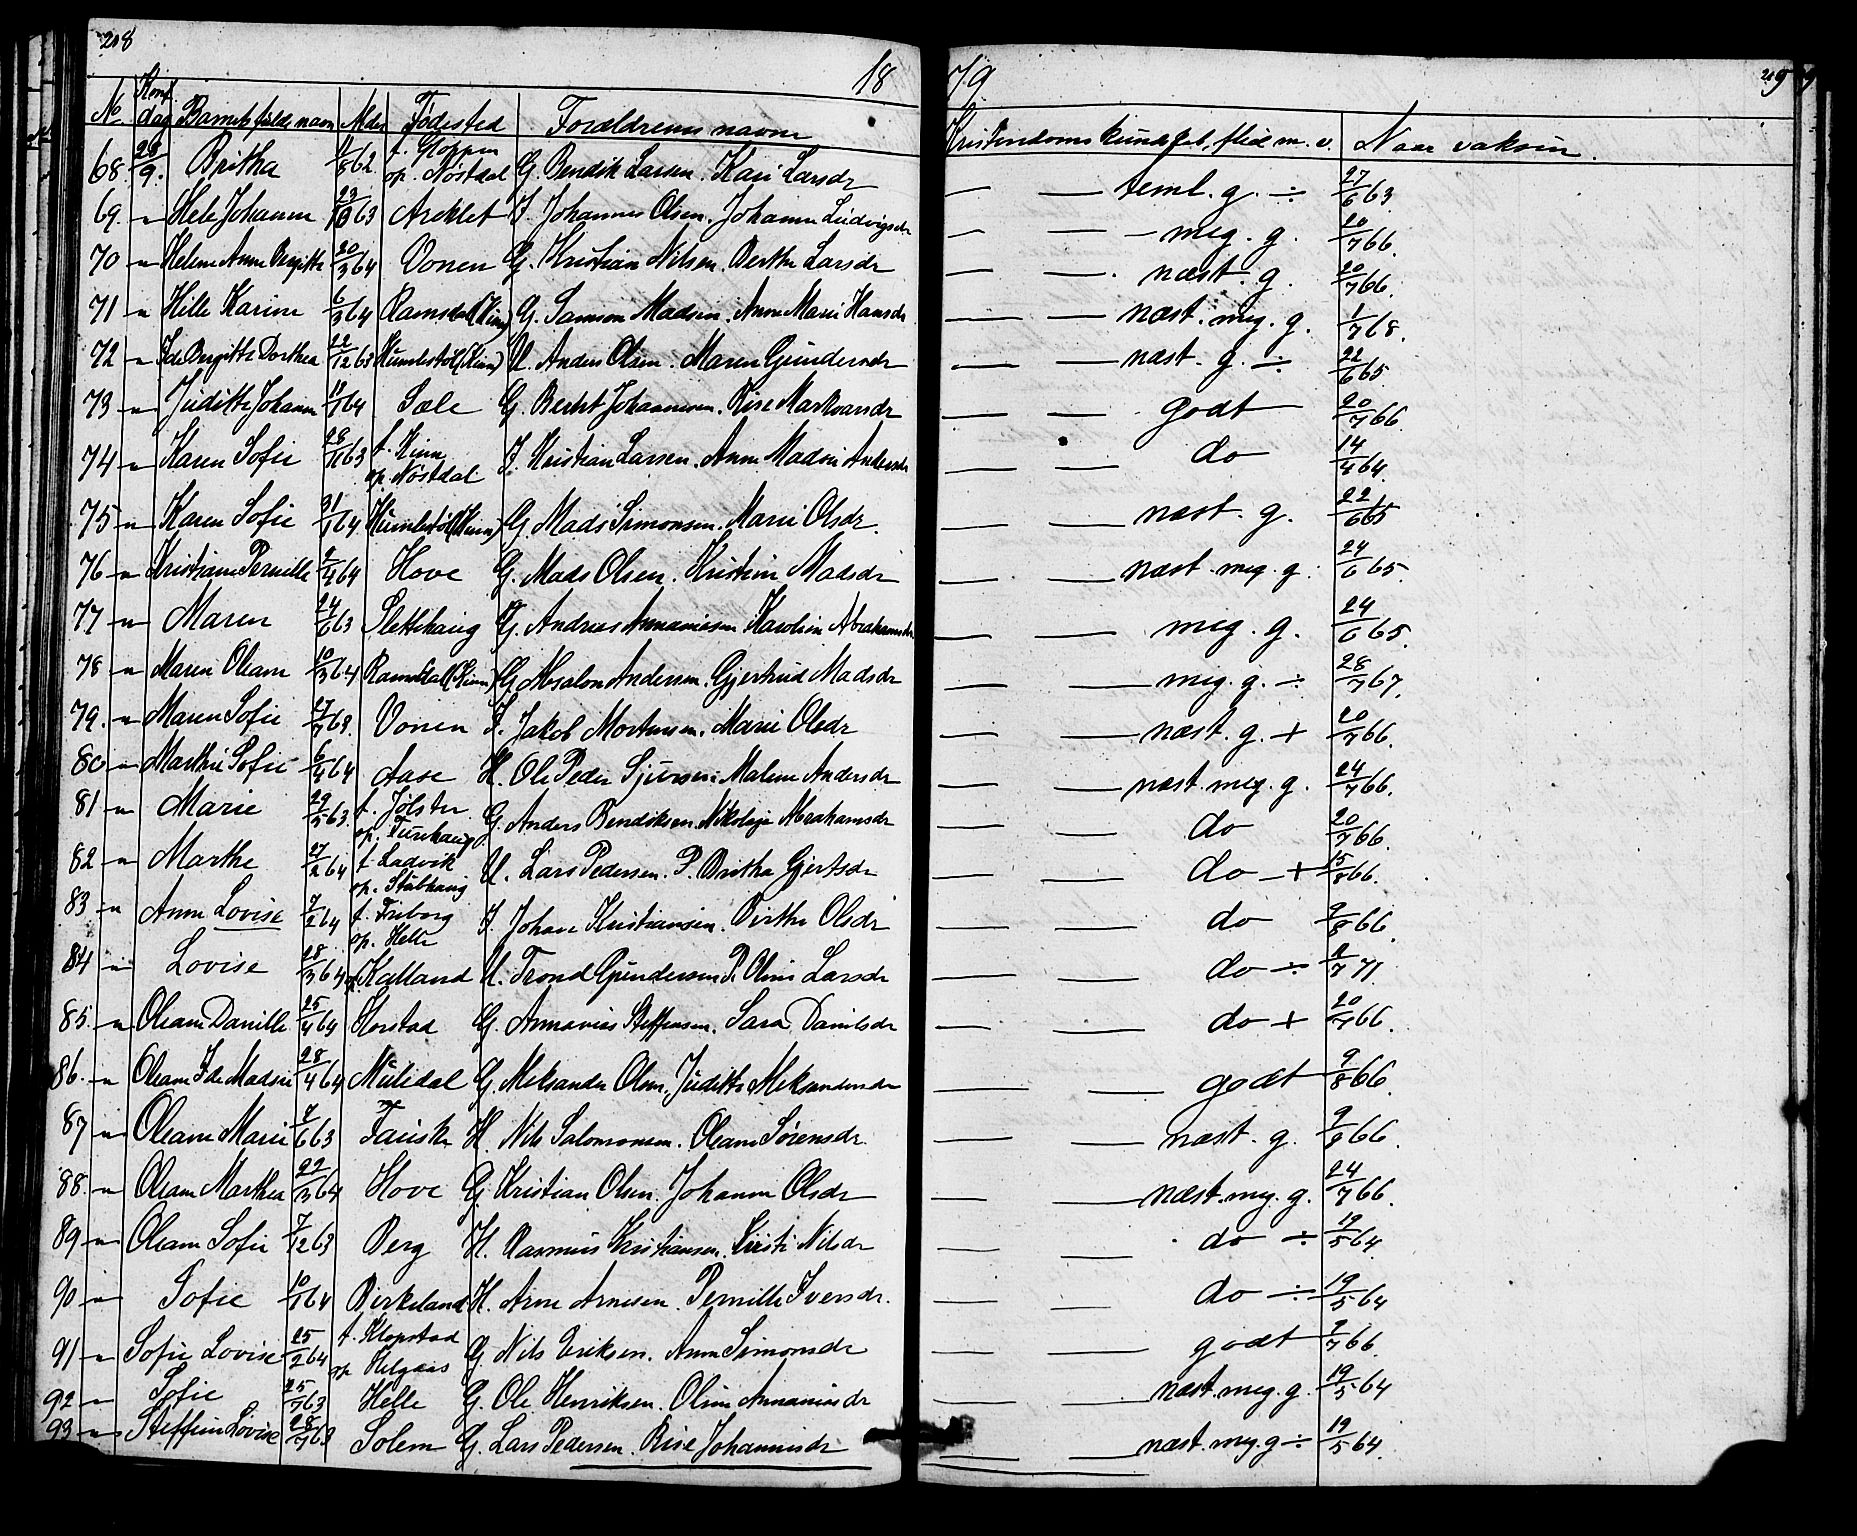 208
18 79
219
No Konf. dag Barnets fulde navn Alder Fødested Forældrenes navne Kristendomskundskab, flid m. v. Naar vaksin.
68. 28/9. Britha 1/8 62. f. Gloppen op. Nöstdal G. Bendik Larsen. Kari Larsdr — — teml. g. ÷ 27/6 63.
69. " Hele Johanne 23/10 63 Areklet I. Johannes Olsen. Johanne Ludvigsdr — — meg. g. 20/7 66.
70 " Helene Anne Bergitte 20/3 64 Vonen G. Kristian Nilsen. Berthe Larsdr — — næst. g. 20/7 66.
71 " Hille Karine 6/3 64 Ramsdal (Kinn) G. Samson Madsen. Anne Marie Hansdr — — næst. meg. g. 1/7 68.
72 " Ida Bergitte Dorthea 22/12 63 Humlestöl (Kinn) U. Anders Olsen. Maren Gundersdr — — næst. g. ÷ 22/6 65.
73 " Juditte Johanne 11/1 64 Sæle G. Berent Johannesen. Rise Markvardr — — godt 20/7 66.
74 " Karen Sofie 28/11 63 f. Kinn op. Nöstdal I. Kristian Larsen. Anne Madsie Andersdr — — do 14/4 64.
75 " Karen Sofie 31/1 64 Humlestöl (Kinn) G. Mads Simonsen. Marie Olsdr. — — næst. g. 22/6 65
76 " Kristiane Pernille 2/4 64 Hove G. Mads Olsen. Kristine Madsdr — — næst. meg. g. 24/6 65.
77 " Maren 24/6 63 Slettehaug G. Andreas Annaniasen Karoline Abrahamsdr — — meg. g. 24/6 65.
78 " Maren Oleane 10/3 64 Ramsdal (Kinn) G. Absalon Andersen. Gjertrud Madsdr — — meg. g. ÷ 28/7 67.
79. " Maren Sofie 27/7 63. Vonen I. Jakob Mortensen. Marie Olsdr — — næst. g. + 20/7 66.
80 " Marthe Sofie 6/4 64 Aase H. Ole Peder Sjursen. Malene Andersdr — — næst. meg. g. 24/7 66.
81 " Marie 29/5 63. f. Jölster op. Tunehaug G. Anders Bendiksen. Nikoleje Abrahamsdr — — do 20/7 66.
82 " Marthe 27/2 64 f. Ladvik op. Stubhaug U. Lars Pedersen. P. Britha Gjertsdr — — do + 15/8 66.
83 " Anne Lovise 7/2 64 f. Friborg op. Helle I. Johan Kristiansen. Birthe Olsdr — — do 9/8 66.
84 " Lovise 28/3 64 Kalland U. Trond Gundersen P. Oline Larsdr — — do ÷ 2/7 71
85. " Oleane Danille 25/4 64 Horstad G. Annanias Steffensen. Sara Danilsdr — — do + 20/7 66.
86. " Oleane Ida Madsie 28/4 64 Mulidal G. Aleksander Olsen. Juditte Aleksandersdr — — godt 9/8 66.
87 " Oleane Marie 7/6 63 Fauske H. Nils Salomonsen. Oleane Sørensdr. — — næst. g. 9/8 66.
88. " Oleane Marthea 22/3 64 Hove G. Kristian Olsen. Johanne Olsdr — — næst. meg. g. 24/7 66.
89 " Oleane Sofie 7/12 63 Berg H. Rasmus Kristiansen. Kirsti Nilsdr — — do ÷ 19/5 64
90 " Sofie 10/1 64 Birkeland H. Arne Arnesen. Pernille Iversdr. — — do ÷ 19/5 64
91 " Sofie Lovise 25/2 64 f. Klopstad op. Helgaas G. Nils Eriksen. Anne Simonsdr — — godt 9/7 66.
92 " Sofie 25/7 63 Helle G. Ole Henriksen. Oline Annaniasdr — — næst. meg. g. 19/5 64
93 " Steffine Lovise 28/7 63 Solem G. Lars Pedersen. Rise Johannesdr — — næst. meg. g ÷ 19/5 64.